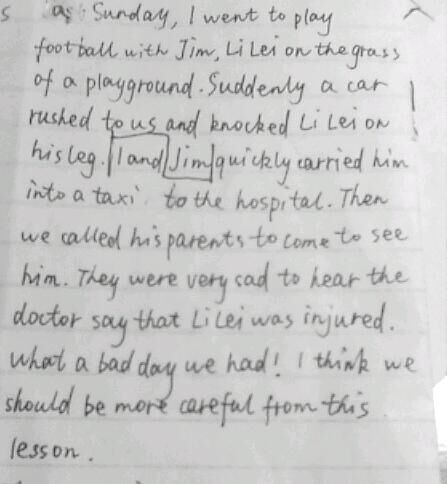 s as Sunday, I went to play
football with Jim, Li Lei on the grass
of a playground. Suddenly a car
rushed to us and knocked Li Lei on
his leg. I and Jim quickly carried him
into a taxi to the hospital. Then
we called his parents to come to see
him. They were very sad to hear the
doctor say that Li Lei was injured.
What a bad day we had! I think we
should be more careful from this
lesson.